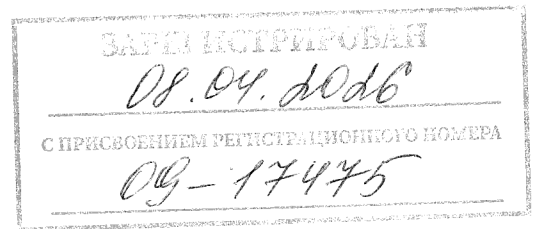 ЗАРЕГИСТРИРОВАН
08.04.2026
С ПРИСВОЕНИЕМ РЕГИСТРАЦИОННОГО НОМЕРА
09-17475